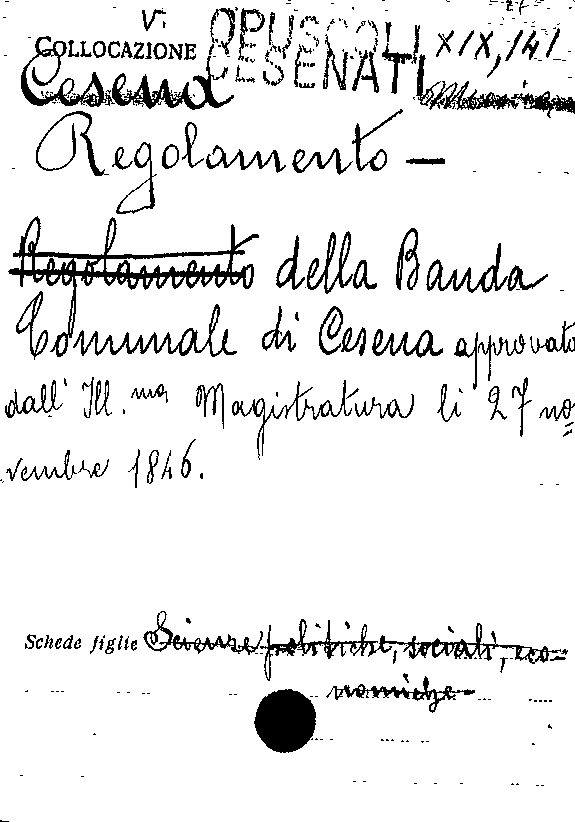 V.
COLLOCAZIONE OPUSCOLI XIX, 141
CESENATI
Cesena
Regolamento —
Regolamento della Banda
Comunale di Cesena approvato
dall' Ill.ma Magistratura li 27 no=
vembre 1846.
Schede figlie Scienze politiche, sociali, eco=
nomiche